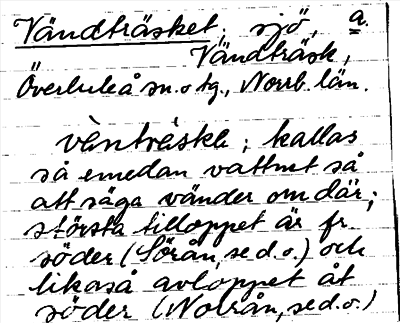 Vändträsket, sjö, a.
Vändträsk,
Överluleå sn. o tg., Norrb. län.
vèntrǻskǝ ; kallas
så emedan vattnet så
att säga vänder om där;
största tilloppet är fr.
söder (Sörån, se d. o.) och
likaså avloppet åt
söder (Norån, se d. o.)